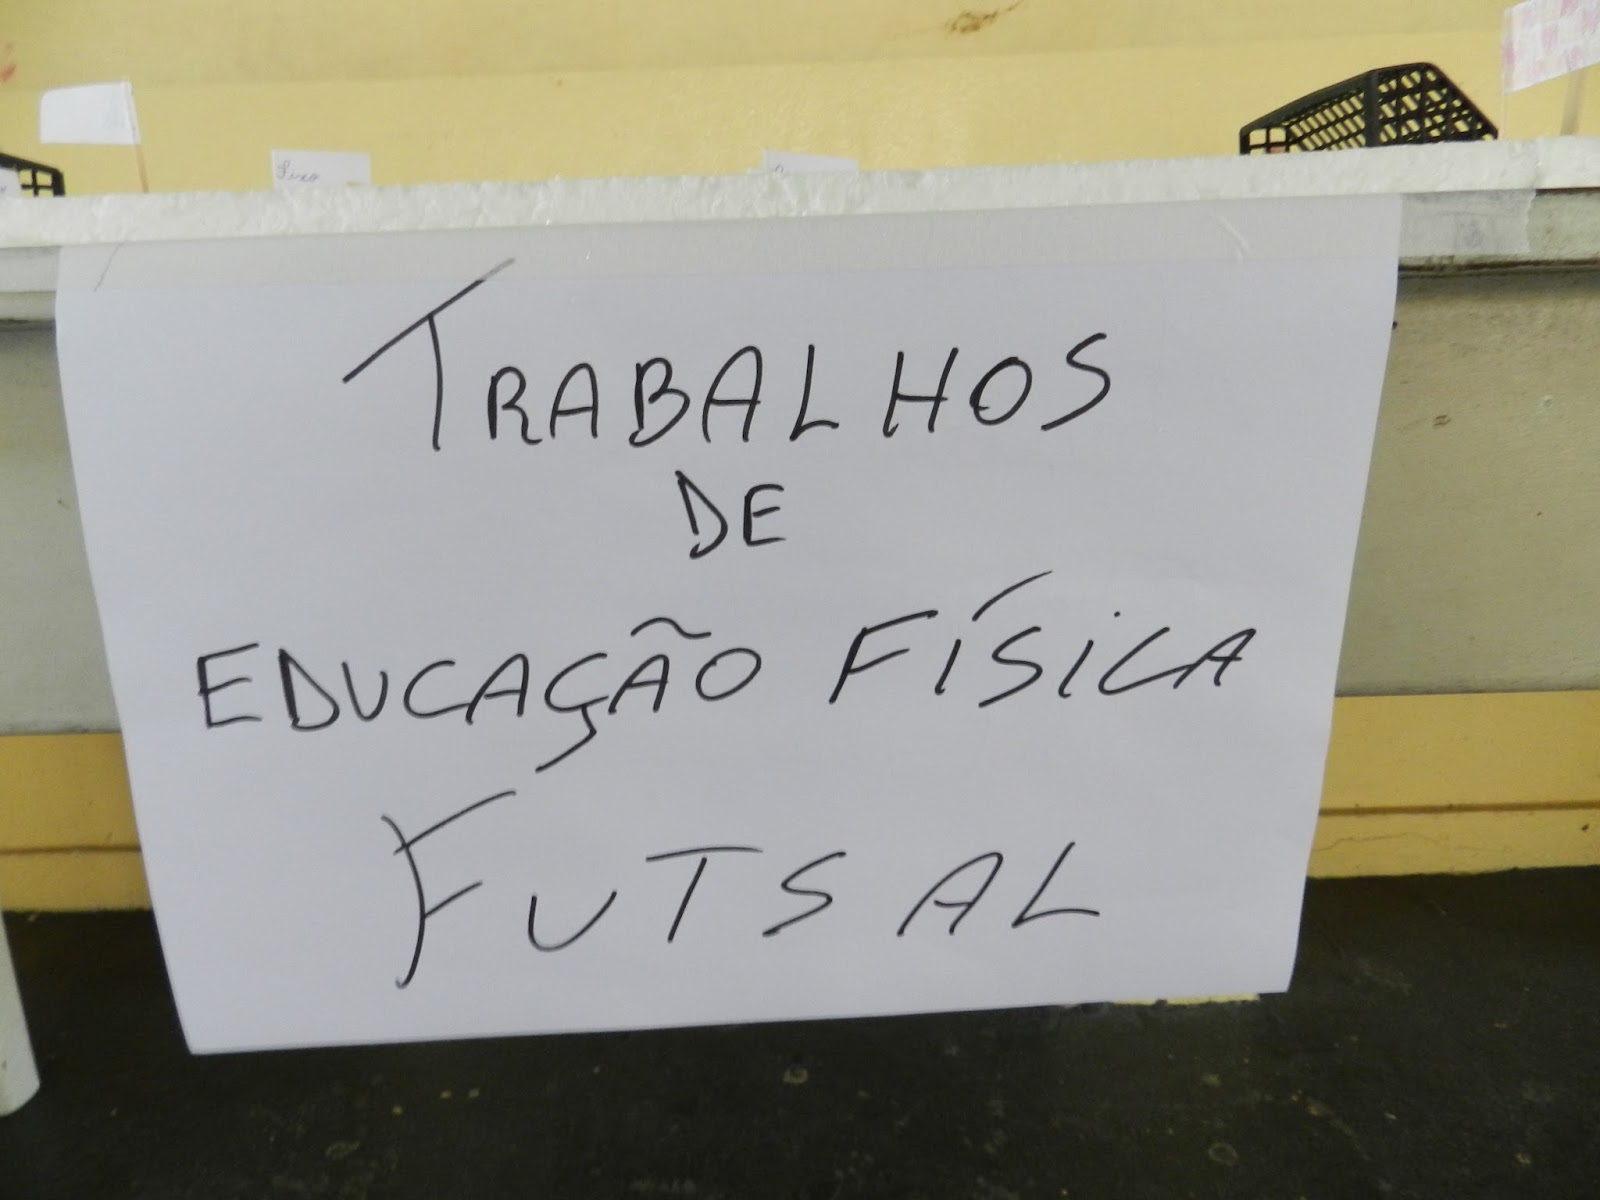 TRABALHOS
DE
EDUCAÇÃO FÍSICA
FUTSAL